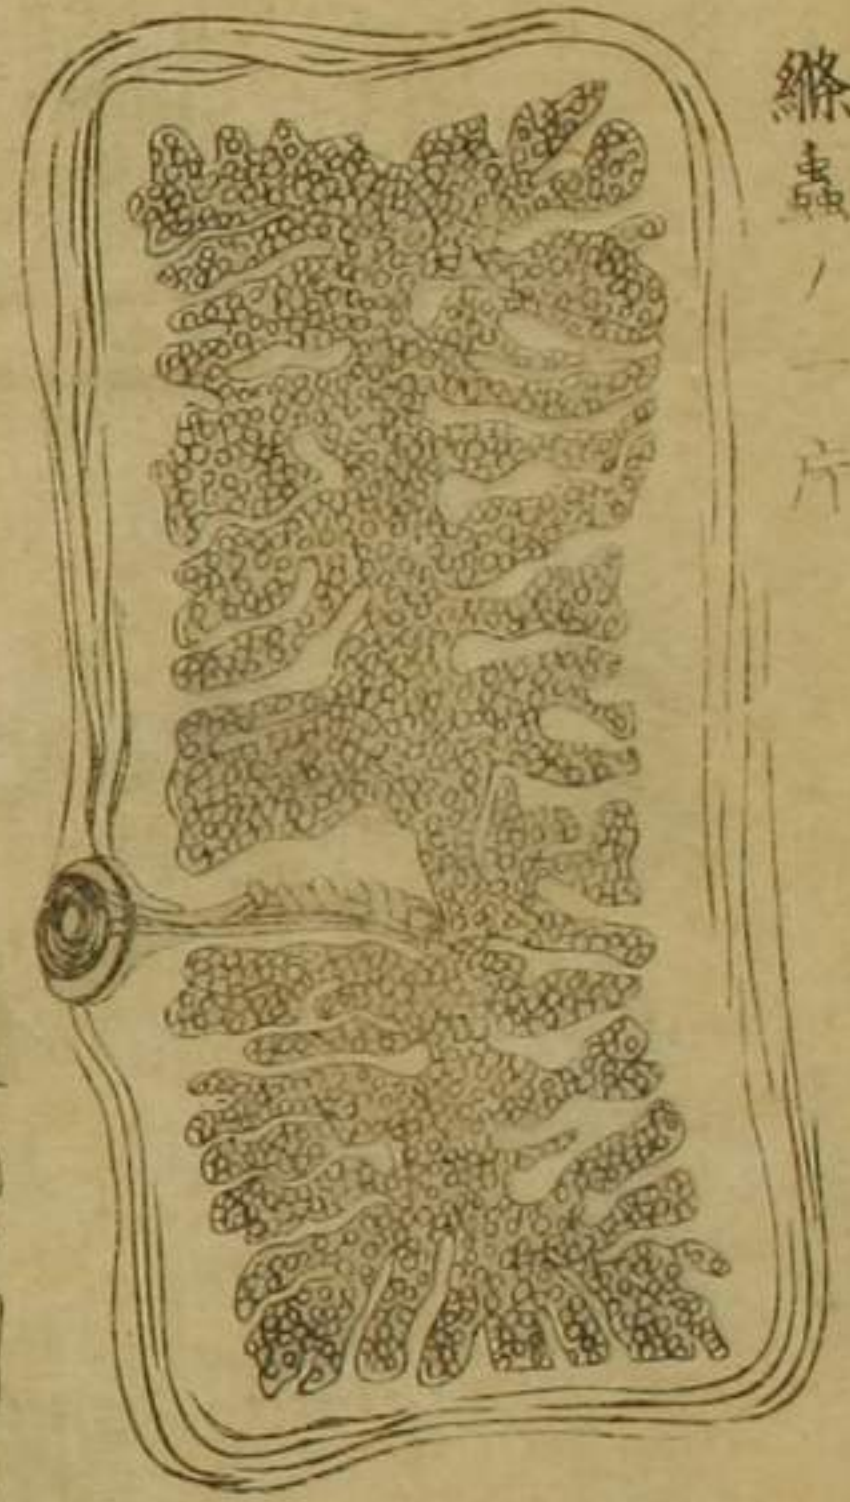 縧蟲ノ一片